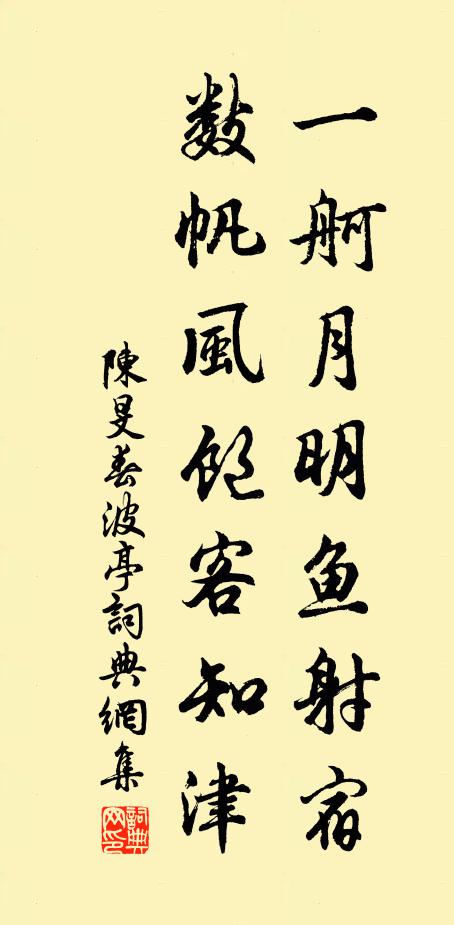 一舸月明鱼射宿
数帆風飽客知津
陳旻春波亭詞典網集
詞典網印